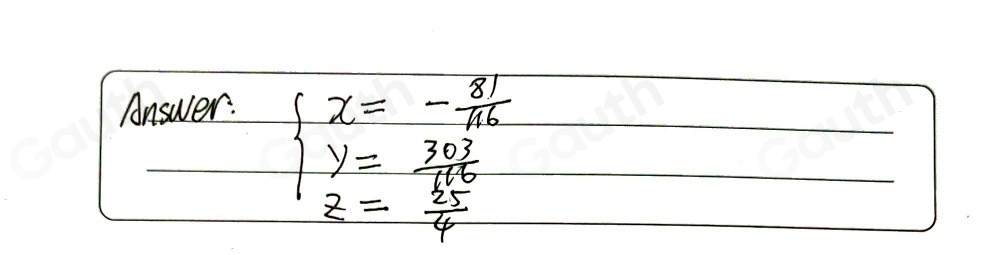 Answer: { x = - 81/116
y = 303/116
z = 25/4
Gauth
Gauth
Gauth
Gauth